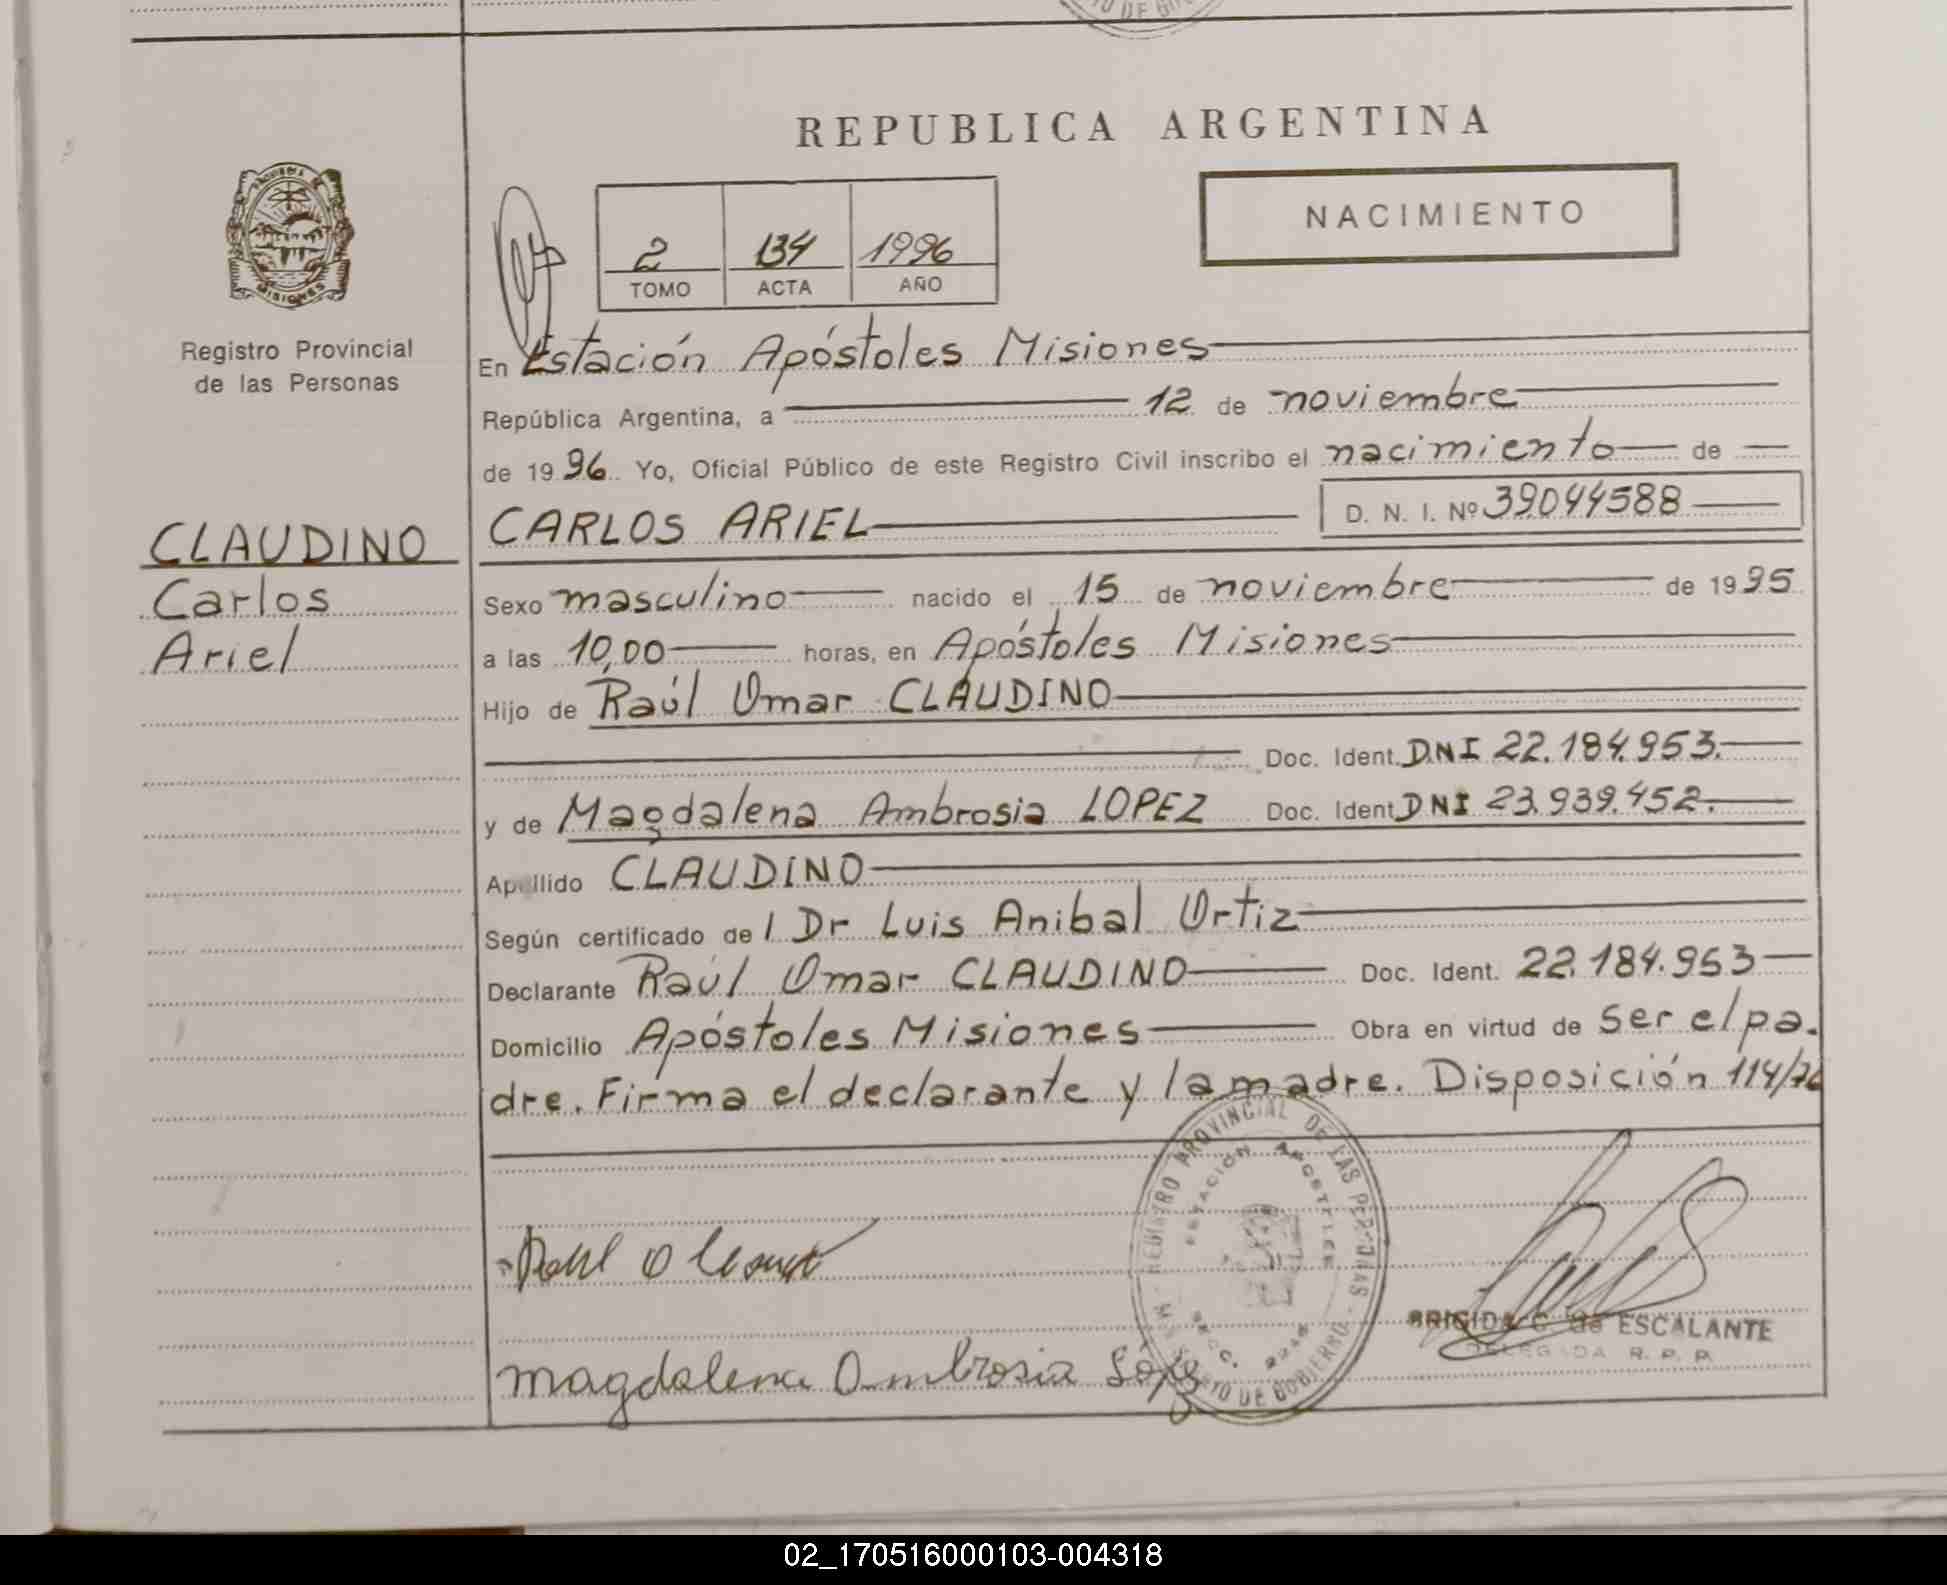 REPUBLICA ARGENTINA
PROVINCIA DE
MISIONES
Registro Provincial
de las Personas
2 134 1996
TOMO ACTA AÑO
NACIMIENTO
En Estación Apóstoles Misiones
República Argentina, a 12 de noviembre
de 1996. Yo, Oficial Público de este Registro Civil inscribo el nacimiento de
CLAUDINO
Carlos
Ariel
CARLOS ARIEL D. N. I. Nº 39044588
Sexo masculino nacido el 15 de noviembre de 1995
a las 10,00 horas, en Apóstoles Misiones
Hijo de Raúl Omar CLAUDINO
Doc. Ident. DNI 22.184.953.
y de Magdalena Ambrosia LOPEZ Doc. Ident. DNI 23.939.452.
Apellido CLAUDINO
Según certificado del Dr Luis Anibal Ortiz
Declarante Raúl Omar CLAUDINO Doc. Ident. 22.184.953
Domicilio Apóstoles Misiones Obra en virtud de ser el pa.
dre. Firma el declarante y la madre. Disposición 114/76
REGISTRO PROVINCIAL DE LAS PERSONAS
ESTACIÓN APOSTOLES
SECC.
DE GOBIERNO
Magdalena Ambrosia López
BRIGIDA C. de ESCALANTE
DELEGADA R. P. P.
02_170516000103-004318